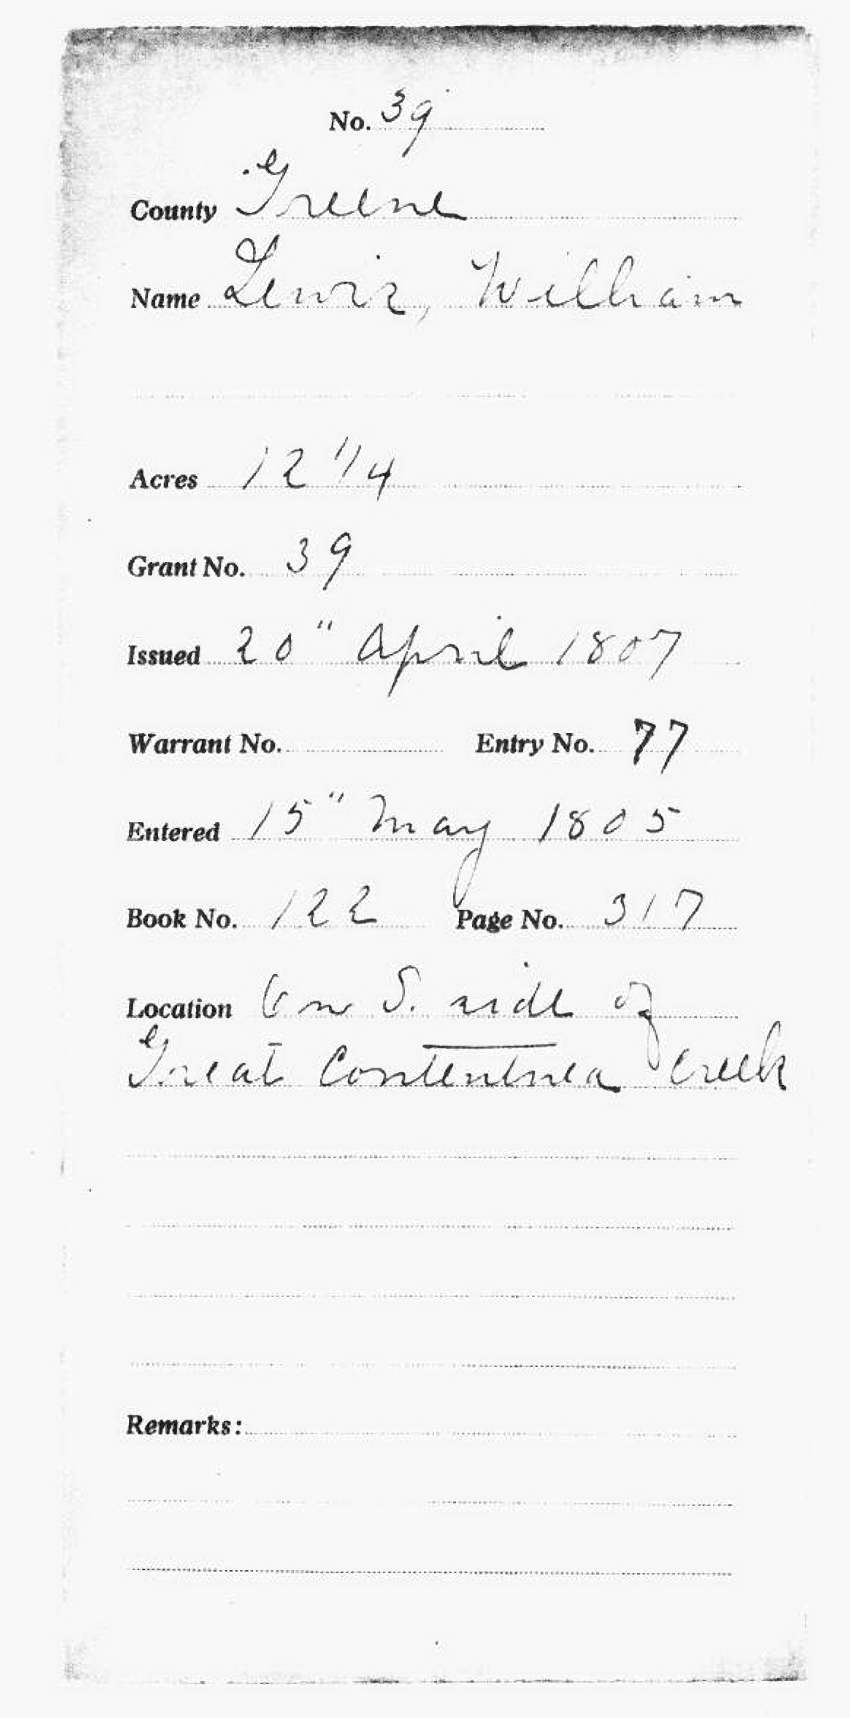 No. 39
County Greene
Name Lewis, William
Acres 12 1/4
Grant No. 39
Issued 20" April 1807
Warrant No. Entry No. 77
Entered 15" May 1805
Book No. 122 Page No. 317
Location On S. side of
Great Contentnea Creek
Remarks: